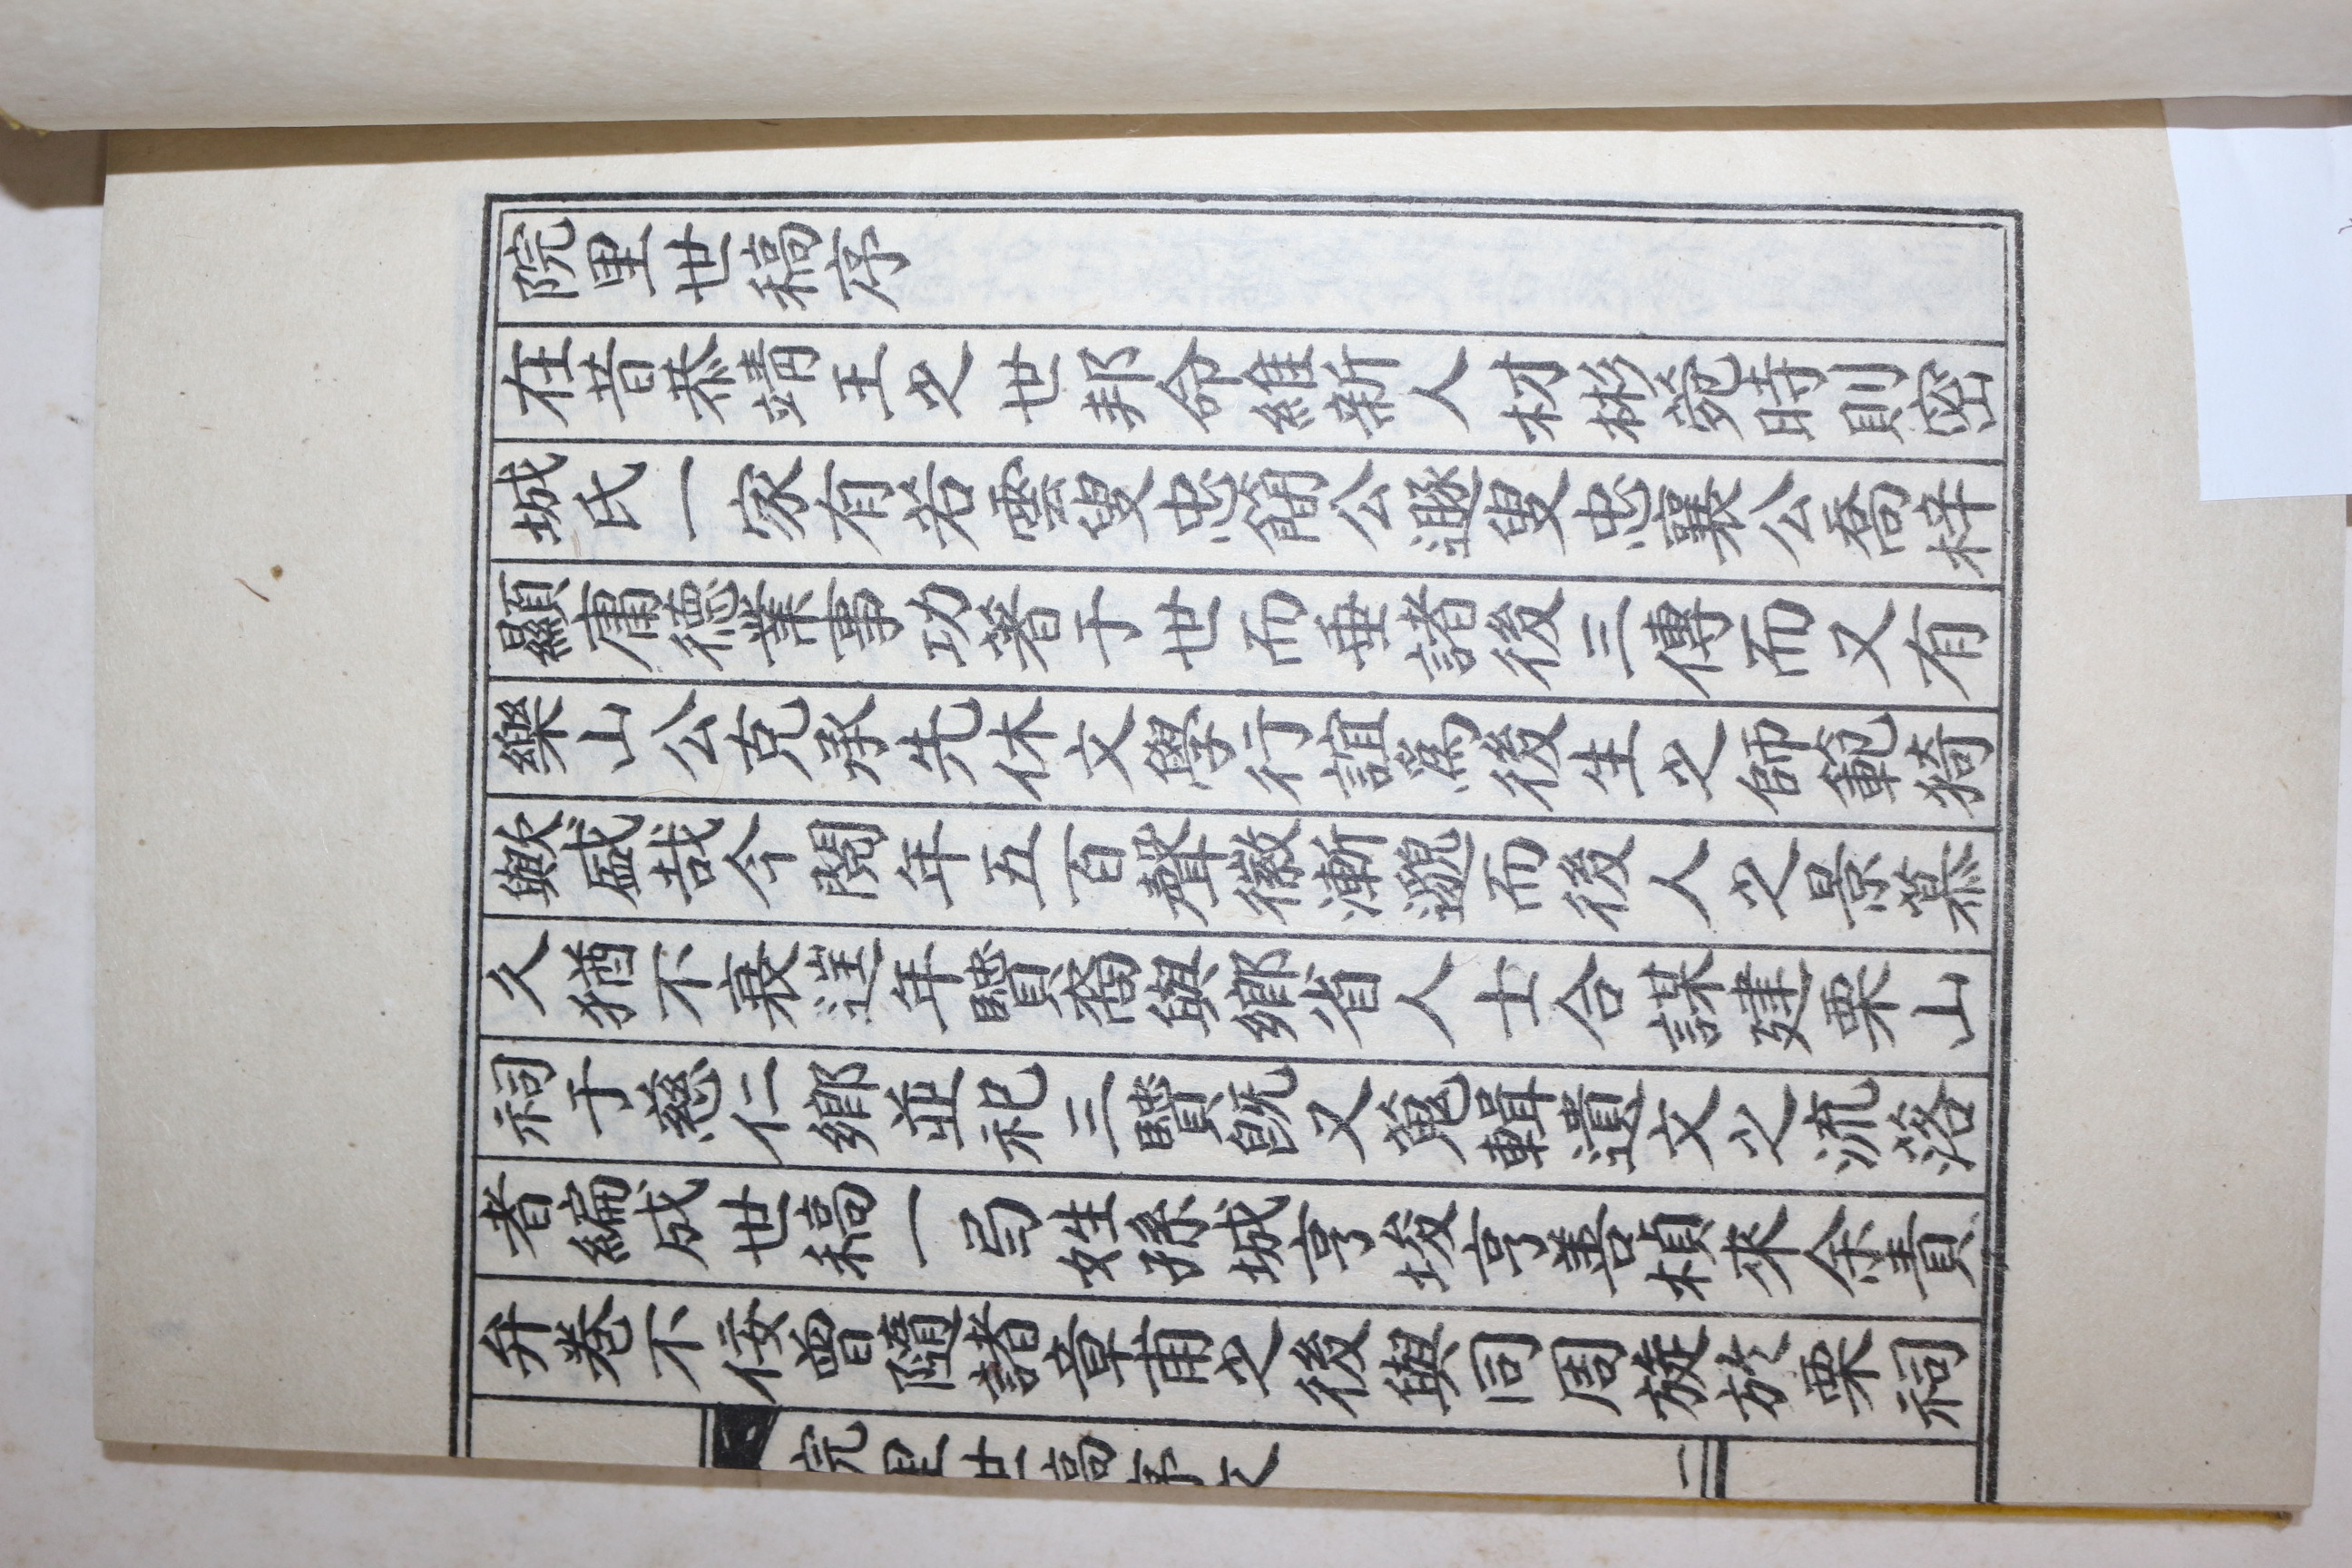 院里世稿序
在昔恭靖王之世邦命維新人材彬菀時則密
城氏一家有若雲叟忠簡公遯叟忠襄公喬梓
顯庸德業事功著于世而垂諸後三傳而又有
樂山公克承先休文學行誼爲後生之師範猗
歟盛哉今閱年五百聲徽漸邈而後人之景慕
久猶不衰迬年賢裔與鄕省人士合謀建栗山
祠于慈仁鄕並祀三賢旣又蒐輯遺文之流落
者編成世稿一弓姓孫城亨埈亨善楨來余責
弁卷不佞曾隨諸章甫之後與同周旋於栗祠
院里世稿序文 一